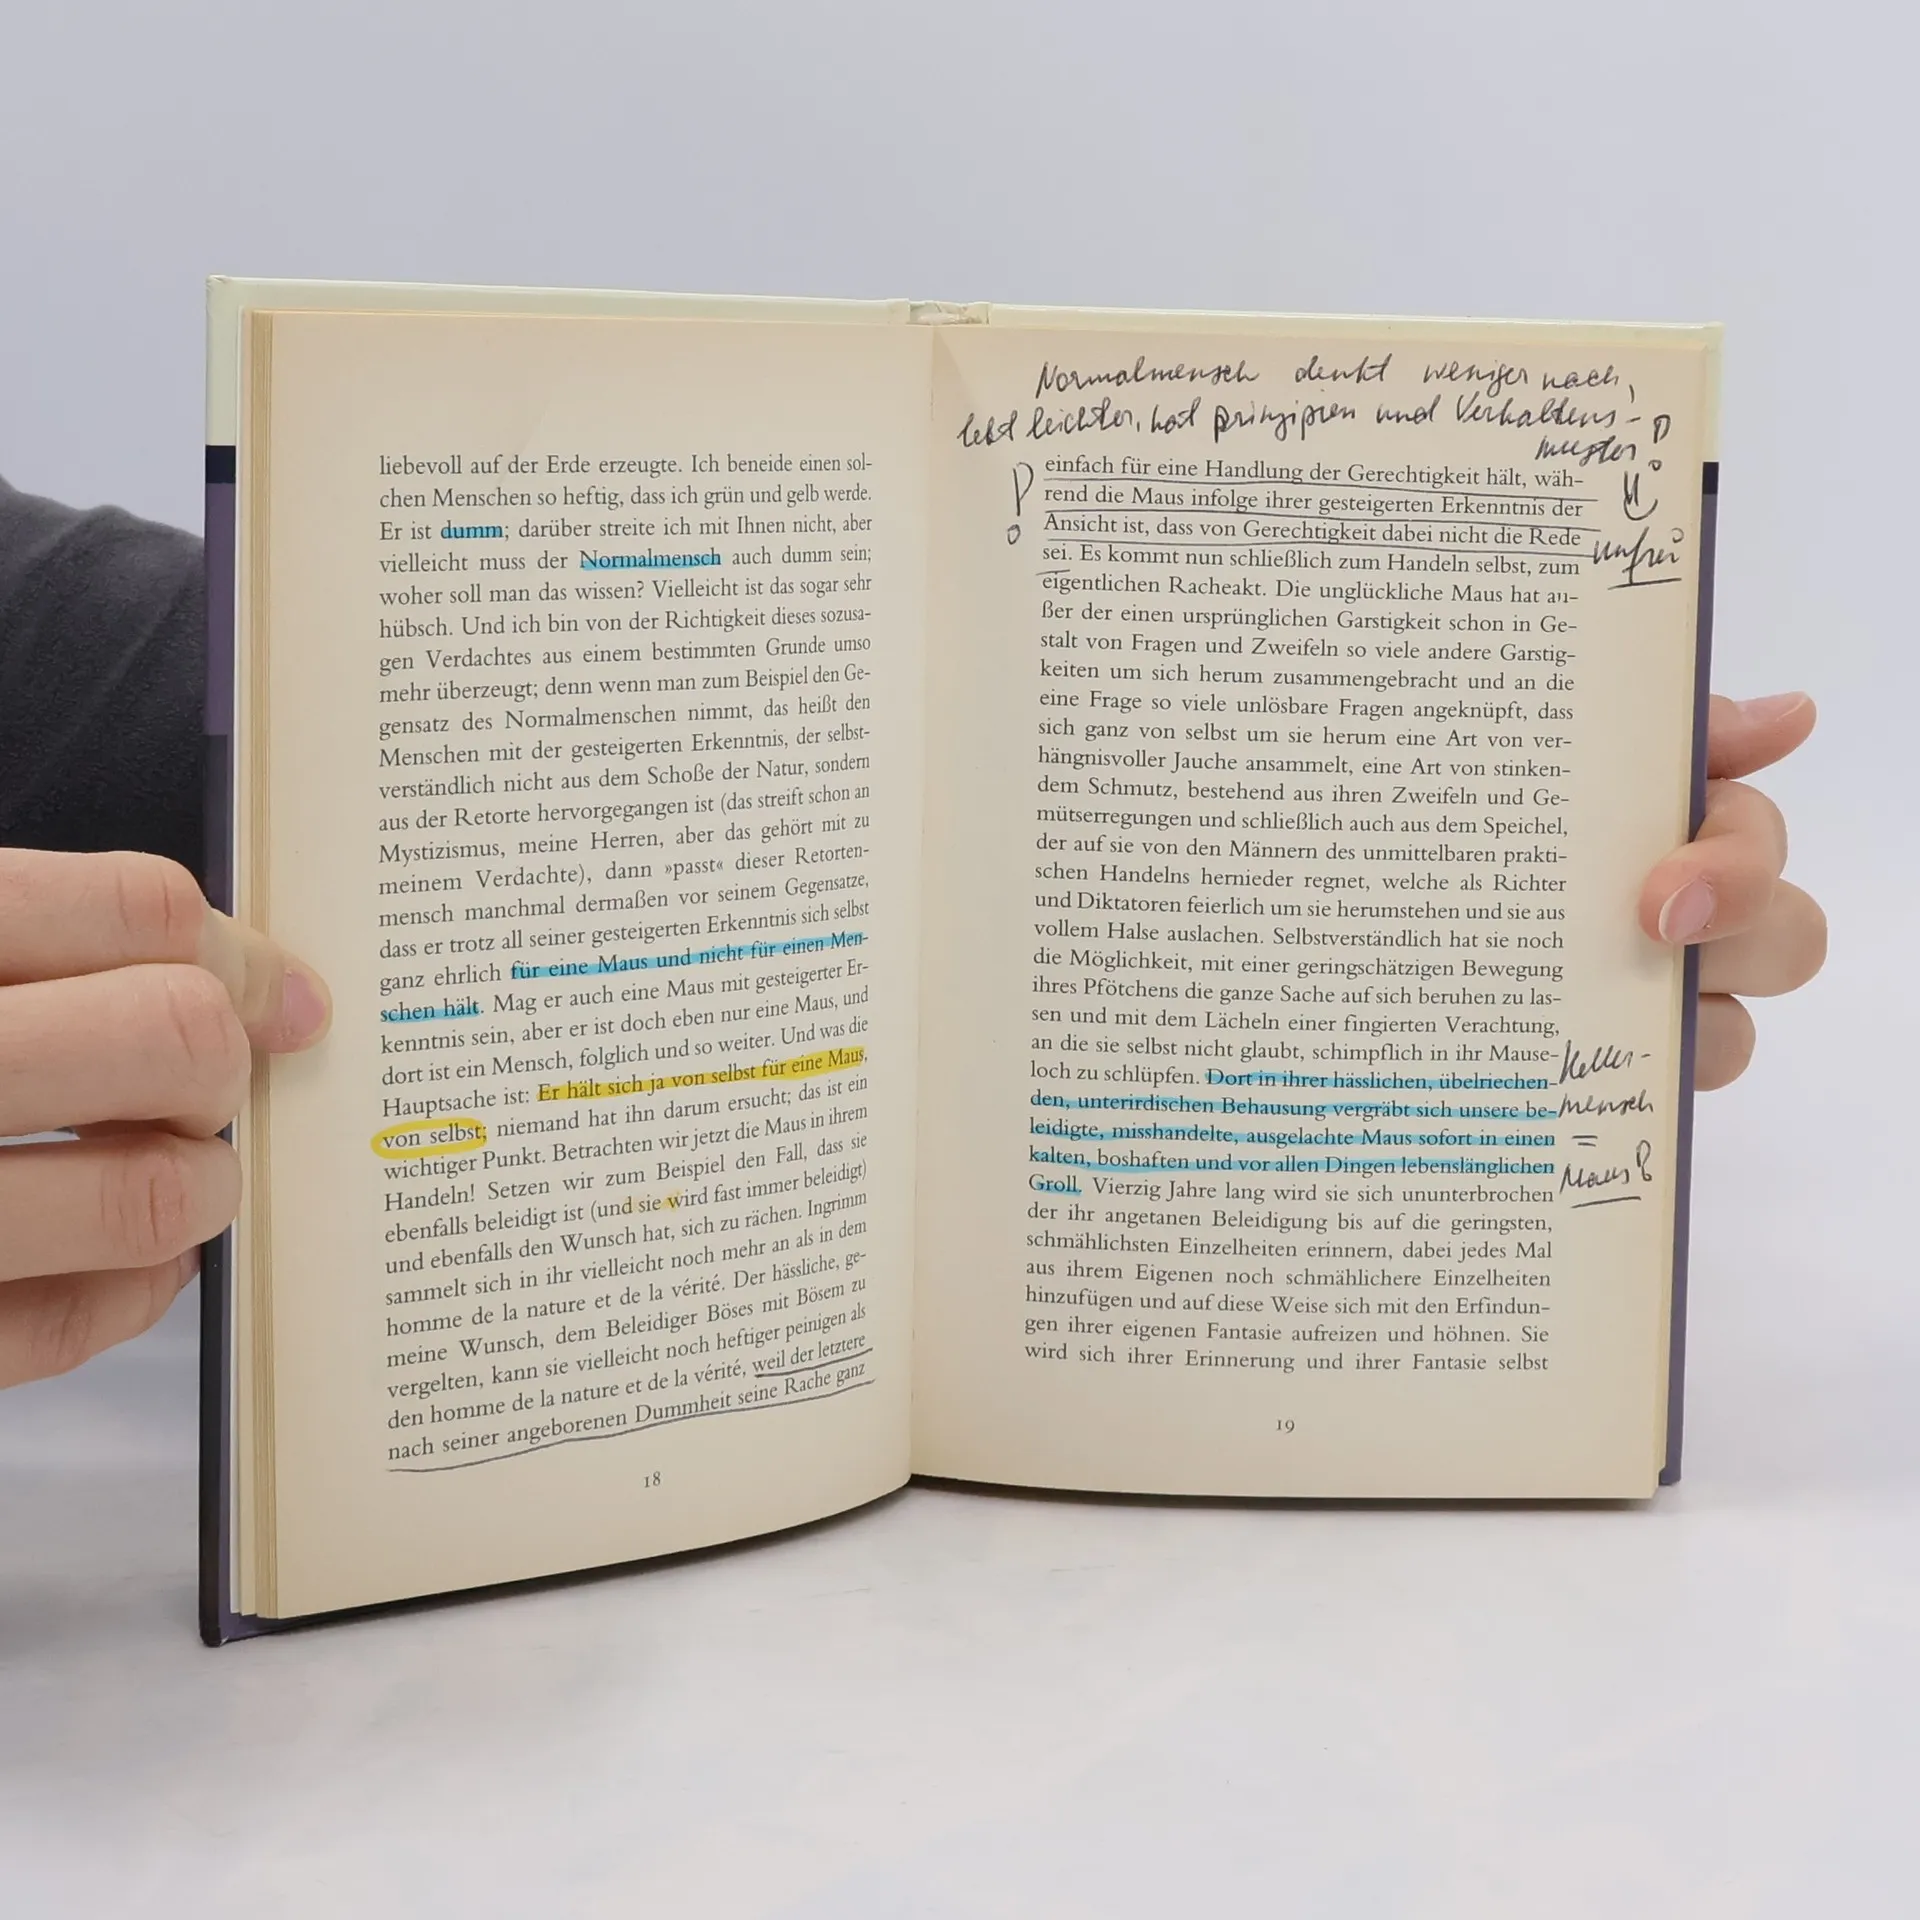 liebevoll auf der Erde erzeugte. Ich beneide einen sol-
chen Menschen so heftig, dass ich grün und gelb werde.
Er ist dumm; darüber streite ich mit Ihnen nicht, aber
vielleicht muss der Normalmensch auch dumm sein;
woher soll man das wissen? Vielleicht ist das sogar sehr
hübsch. Und ich bin von der Richtigkeit dieses sozusa-
gen Verdachtes aus einem bestimmten Grunde umso
mehr überzeugt; denn wenn man zum Beispiel den Ge-
gensatz des Normalmenschen nimmt, das heißt den
Menschen mit der gesteigerten Erkenntnis, der selbst-
verständlich nicht aus dem Schoße der Natur, sondern
aus der Retorte hervorgegangen ist (das streift schon an
Mystizismus, meine Herren, aber das gehört mit zu
meinem Verdachte), dann »passt« dieser Retorten-
mensch manchmal dermaßen vor seinem Gegensatze,
dass er trotz all seiner gesteigerten Erkenntnis sich selbst
ganz ehrlich für eine Maus und nicht für einen Men-
schen hält. Mag er auch eine Maus mit gesteigerter Er-
kenntnis sein, aber er ist doch eben nur eine Maus, und
dort ist ein Mensch, folglich und so weiter. Und was die
Hauptsache ist: Er hält sich ja von selbst für eine Maus,
von selbst; niemand hat ihn darum ersucht; das ist ein
wichtiger Punkt. Betrachten wir jetzt die Maus in ihrem
Handeln! Setzen wir zum Beispiel den Fall, dass sie
ebenfalls beleidigt ist (und sie wird fast immer beleidigt)
und ebenfalls den Wunsch hat, sich zu rächen. Ingrimm
sammelt sich in ihr vielleicht noch mehr an als in dem
homme de la nature et de la vérité. Der hässliche, ge-
meine Wunsch, dem Beleidiger Böses mit Bösem zu
vergelten, kann sie vielleicht noch heftiger peinigen als
den homme de la nature et de la vérité, weil der letztere
nach seiner angeborenen Dummheit seine Rache ganz
18
Normalmensch denkt weniger nach,
lebt leichter, hat prinzipien und Verhaltens-
muster
einfach für eine Handlung der Gerechtigkeit hält, wäh-
rend die Maus infolge ihrer gesteigerten Erkenntnis der
Ansicht ist, dass von Gerechtigkeit dabei nicht die Rede
unfrei
sei. Es kommt nun schließlich zum Handeln selbst, zum
eigentlichen Racheakt. Die unglückliche Maus hat au-
ßer der einen ursprünglichen Garstigkeit schon in Ge-
stalt von Fragen und Zweifeln so viele andere Garstig-
keiten um sich herum zusammengebracht und an die
eine Frage so viele unlösbare Fragen angeknüpft, dass
sich ganz von selbst um sie herum eine Art von ver-
hängnisvoller Jauche ansammelt, eine Art von stinken-
dem Schmutz, bestehend aus ihren Zweifeln und Ge-
mütserregungen und schließlich auch aus dem Speichel,
der auf sie von den Männern des unmittelbaren prakti-
schen Handelns hernieder regnet, welche als Richter
und Diktatoren feierlich um sie herumstehen und sie aus
vollem Halse auslachen. Selbstverständlich hat sie noch
die Möglichkeit, mit einer geringschätzigen Bewegung
ihres Pfötchens die ganze Sache auf sich beruhen zu las-
sen und mit dem Lächeln einer fingierten Verachtung,
an die sie selbst nicht glaubt, schimpflich in ihr Mause-
loch zu schlüpfen. Dort in ihrer hässlichen, übelriechen-
den, unterirdischen Behausung vergräbt sich unsere be-
leidigte, misshandelte, ausgelachte Maus sofort in einen
kalten, boshaften und vor allen Dingen lebenslänglichen
Groll. Vierzig Jahre lang wird sie sich ununterbrochen
der ihr angetanen Beleidigung bis auf die geringsten,
schmählichsten Einzelheiten erinnern, dabei jedes Mal
aus ihrem Eigenen noch schmählichere Einzelheiten
hinzufügen und auf diese Weise sich mit den Erfindun-
gen ihrer eigenen Fantasie aufreizen und höhnen. Sie
wird sich ihrer Erinnerung und ihrer Fantasie selbst
Keller-
mensch
=
Maus
19